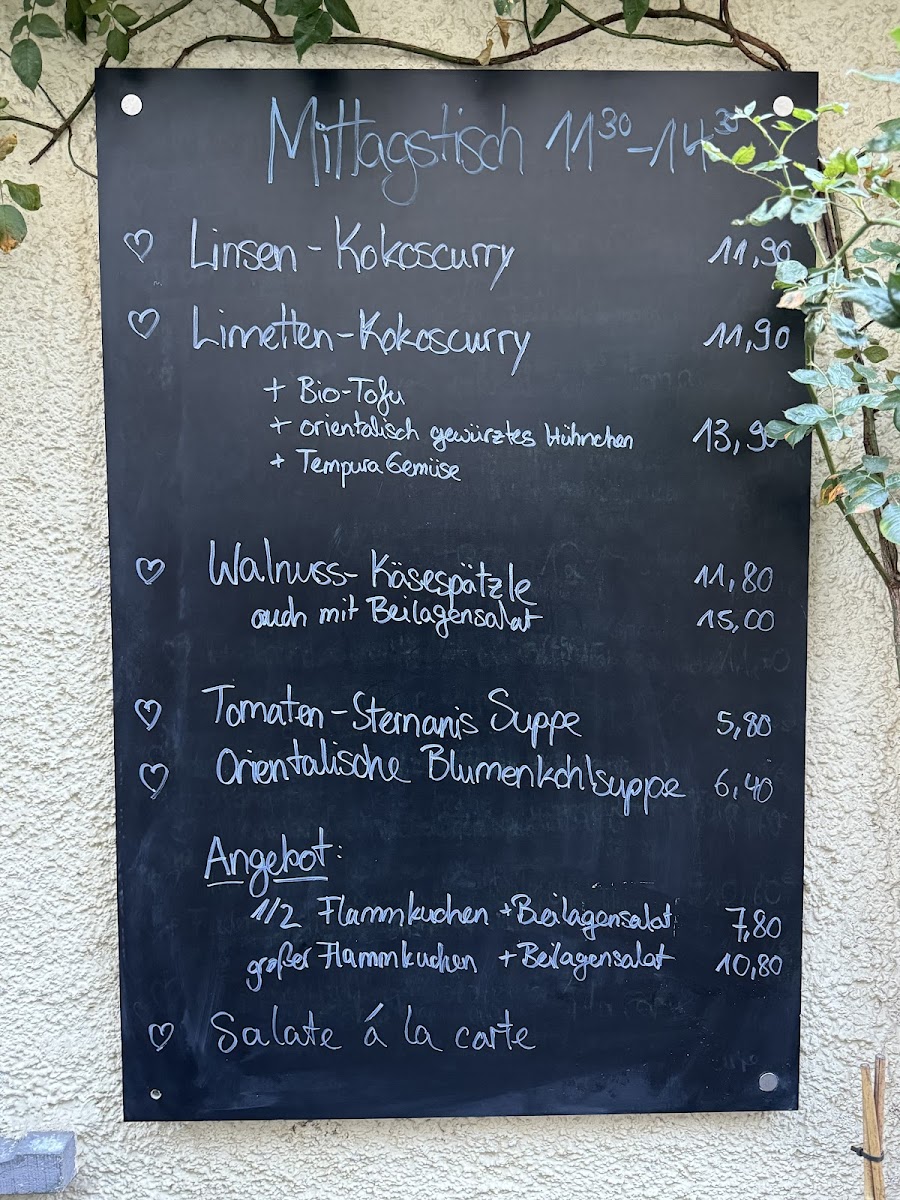 Mittagstisch 11³⁰-14³⁰
♡ Linsen-Kokoscurry 11,90
♡ Limetten-Kokoscurry 11,90
+ Bio-Tofu
+ orientalisch gewürztes Hühnchen 13,90
+ Tempura Gemüse
♡ Walnuss-Käsespätzle 11,80
auch mit Beilagensalat 15,00
♡ Tomaten-Sternanis Suppe 5,80
♡ Orientalische Blumenkohlsuppe 6,40
Angebot:
1/2 Flammkuchen +Beilagensalat 7,80
großer Flammkuchen +Beilagensalat 10,80
♡ Salate á la carte